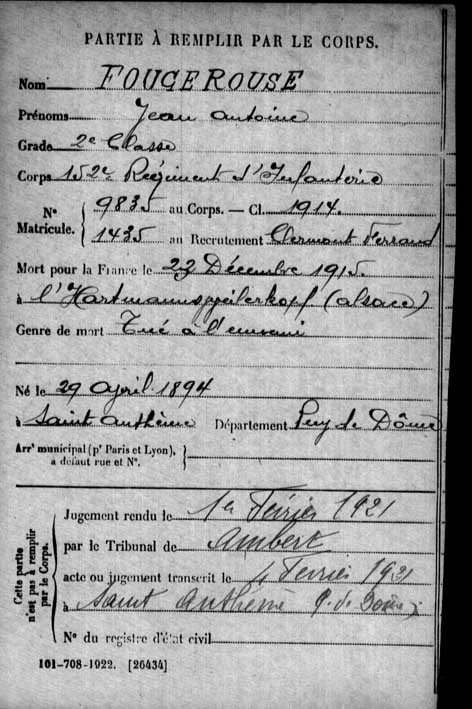 PARTIE À REMPLIR PAR LE CORPS.
Nom FOUGEROUSE
Prénoms Jean Antoine
Grade 2e Classe
Corps 152e Régiment d'Infanterie
N° Matricule. { 9835 au Corps. — Cl. 1914.
1435 au Recrutement Clermont Ferrand
Mort pour la France le 22 Décembre 1915.
à l'Hartmannsweilerkopf (alsace)
Genre de mort Tué à l'ennemi
Né le 29 april 1894
à Saint Anthème Département Puy de Dôme
Arrt municipal (pr Paris et Lyon),
à défaut rue et N°.
Cette partie n'est pas à remplir par le Corps.
Jugement rendu le 1er Février 1921
par le Tribunal de Ambert
acte ou jugement transcrit le 4 Février 1921
à Saint Anthème P. de Dôme
N° du registre d'état civil
101-708-1922. [26434]